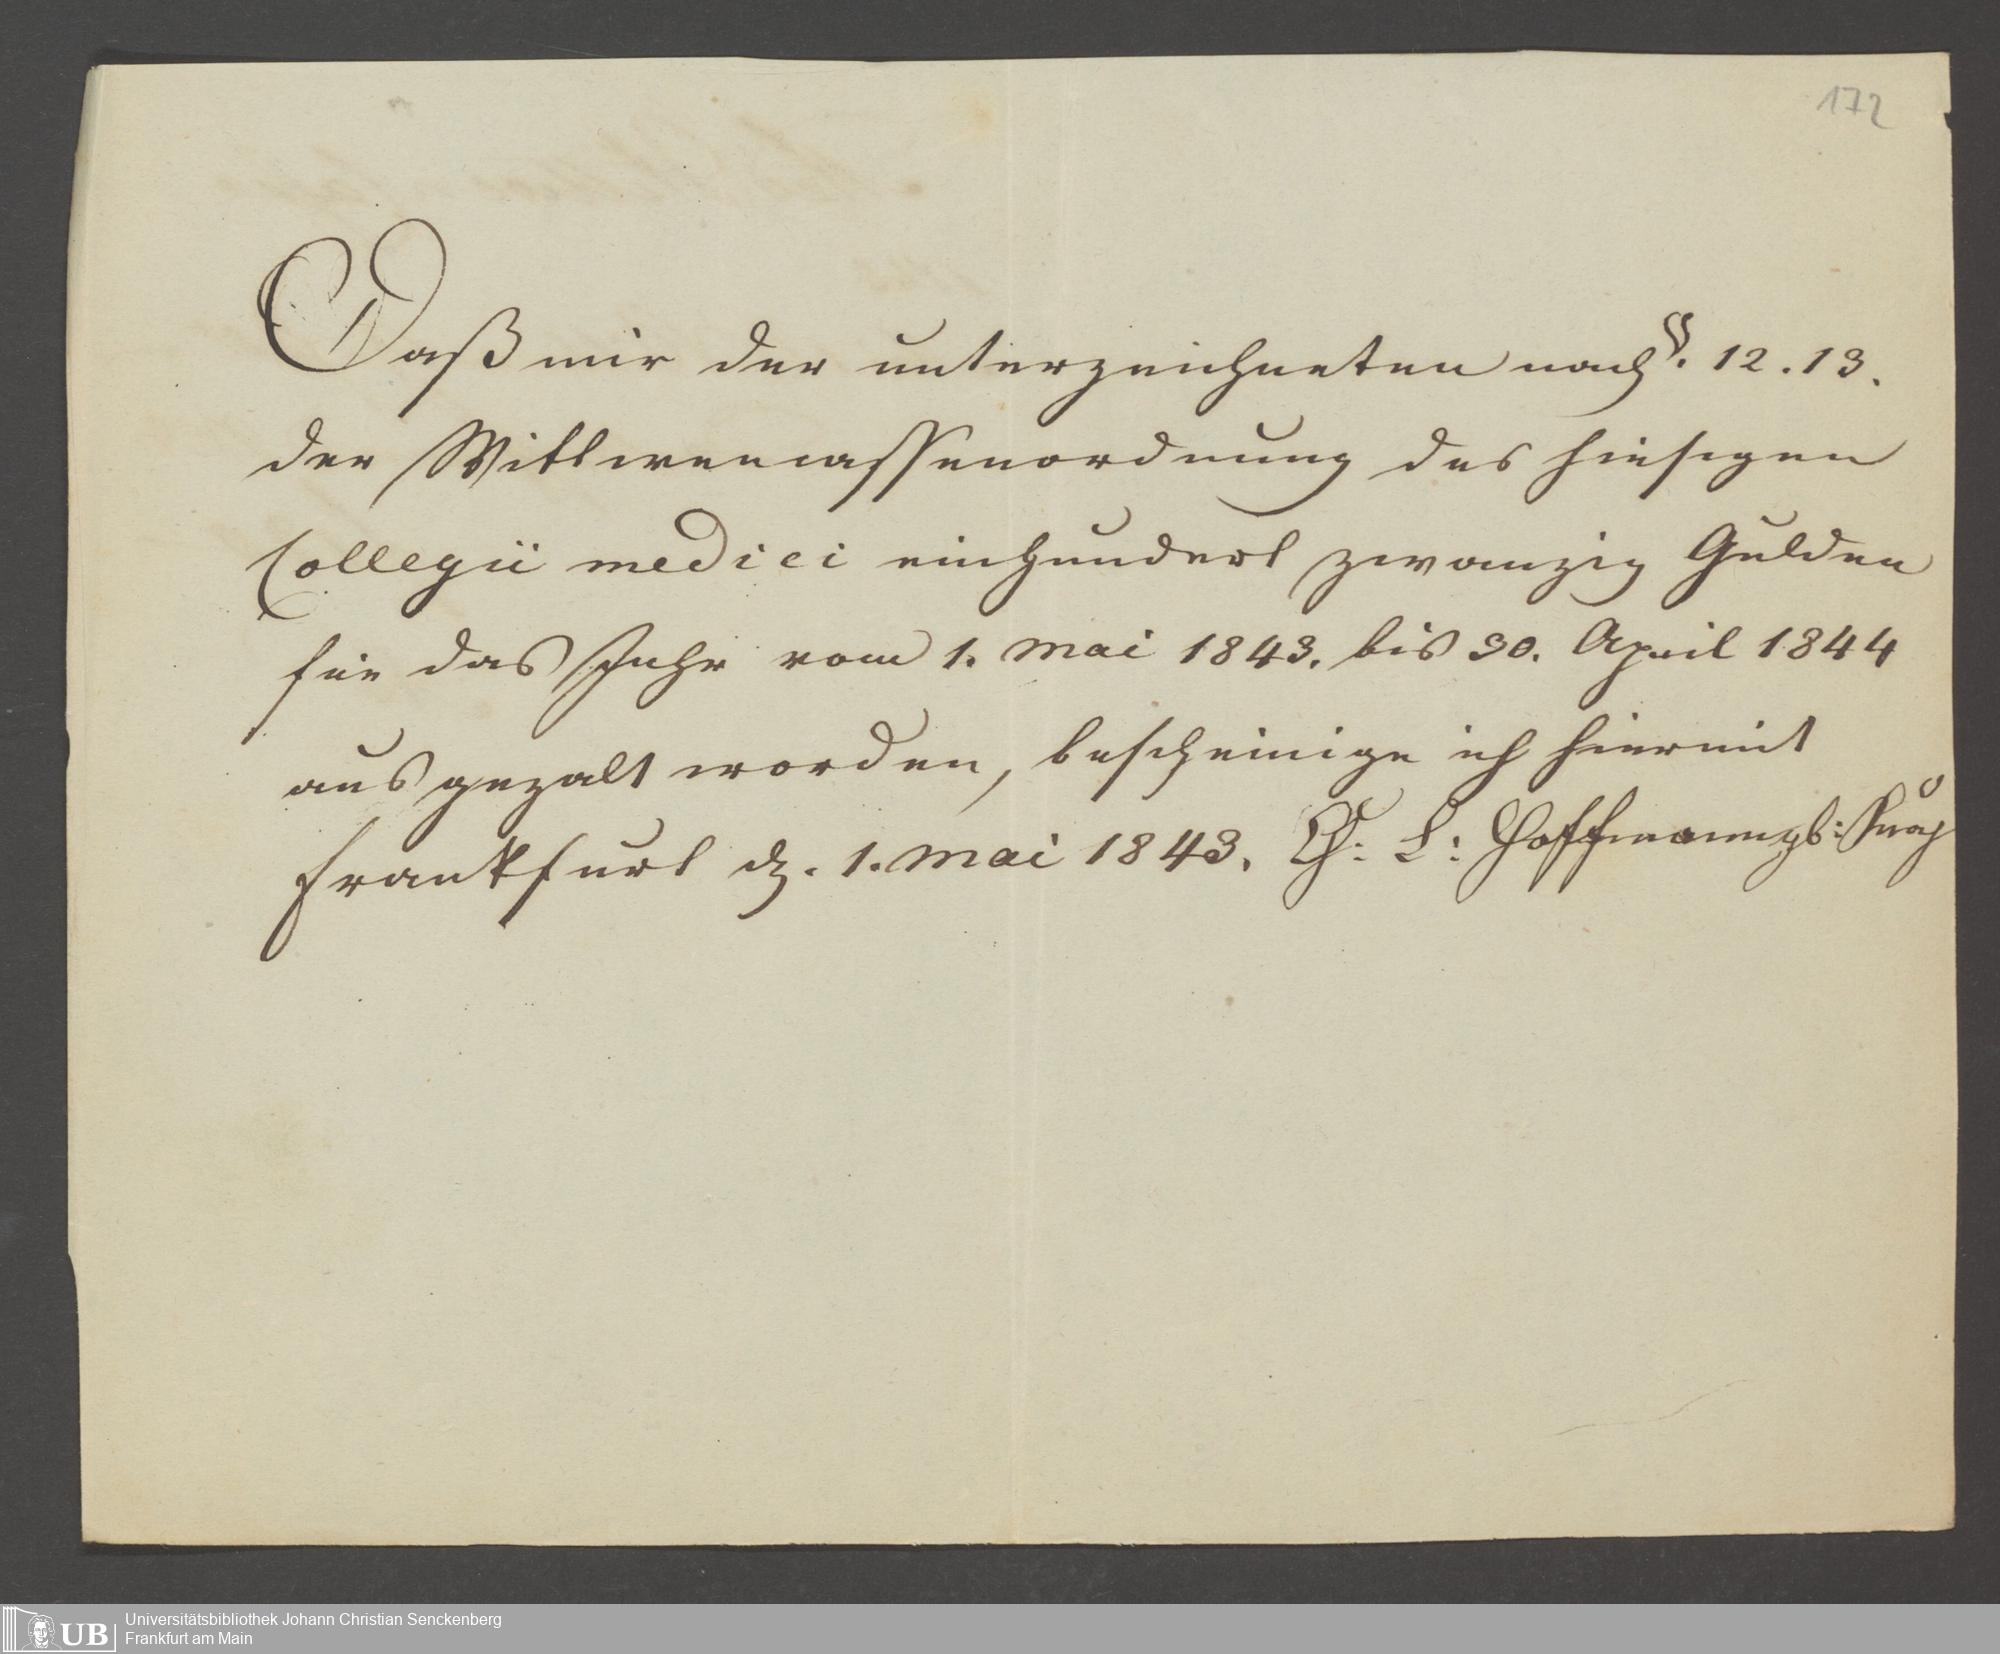 172
Daß mir der unterzeichneten nach §. 12. 13.
der Wittwencassenordnung des hiesigen
Collegii medici einhundert zwanzig Gulden
für das Jahr vom 1. Mai 1843. bis 30. April 1844
ausgezalt worden, bescheinige ich hiermit
Frankfurt d. 1. Mai 1843. Ch: L: Hoffmann gb:
UB
Universitätsbibliothek Johann Christian Senckenberg
Frankfurt am Main